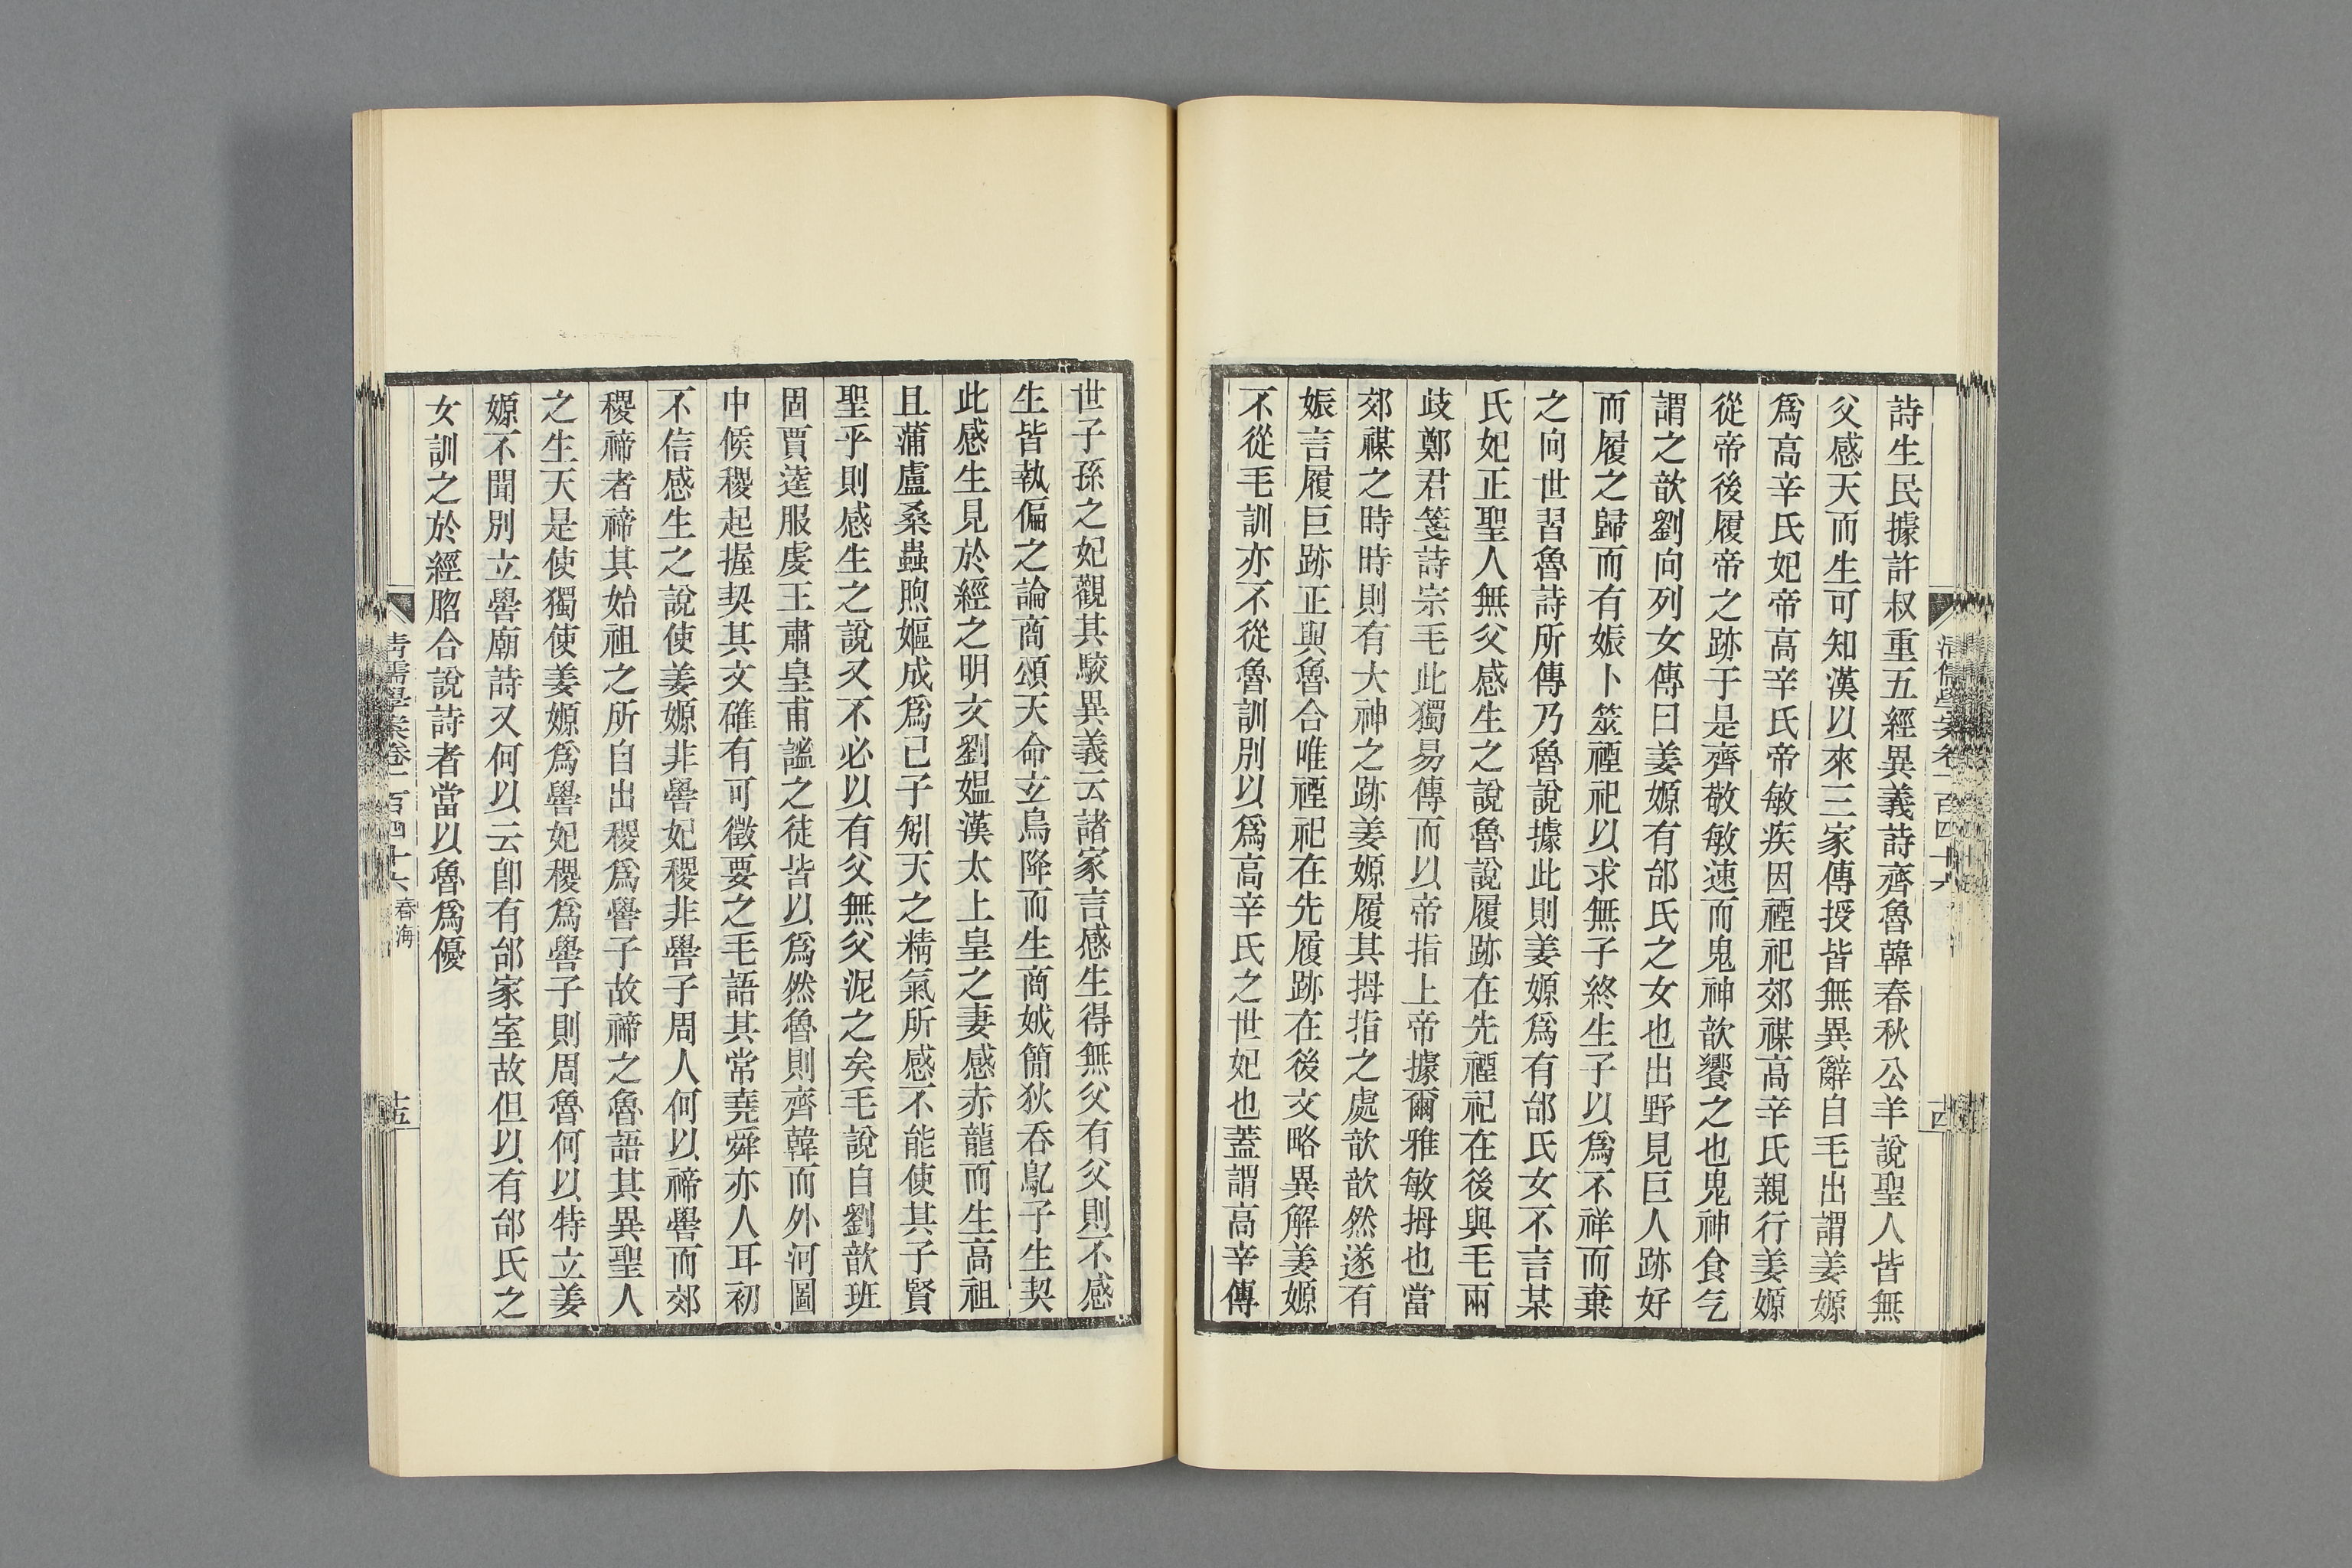 詩生民據許叔重五經異義詩齊魯韓春秋公羊說聖人皆無
父感天而生可知漢以來三家傳授皆無異辭自毛出謂姜嫄
爲高辛氏妃帝高辛氏帝敏疾因禋祀郊禖高辛氏親行姜嫄
從帝後履帝之跡于是齊敬敏速而鬼神歆饗之也鬼神食气
謂之歆劉向列女傳曰姜嫄有邰氏之女也出野見巨人跡好
而履之歸而有娠卜筮禋祀以求無子終生子以爲不祥而棄
之向世習魯詩所傳乃魯說據此則姜嫄爲有邰氏女不言某
氏妃正聖人無父感生之說魯說履跡在先禋祀在後與毛兩
歧鄭君箋詩宗毛此獨易傳而以帝指上帝據爾雅敏拇也當
郊禖之時時則有大神之跡姜嫄履其拇指之處歆歆然遂有
娠言履巨跡正與魯合唯禋祀在先履跡在後文略異解姜嫄
不從毛訓亦不從魯訓別以爲高辛氏之世妃也蓋謂高辛傳
清儒學案卷一百四十六
世子孫之妃觀其駮異義云諸家言感生得無父有父則不感
生皆執偏之論商頌天命玄鳥降而生商娀簡狄吞鳦子生契
此感生見於經之明文劉媼漢太上皇之妻感赤龍而生高祖
且蒲盧桑蟲煦嫗成爲己子矧天之精氣所感不能使其子賢
聖乎則感生之說又不必以有父無父泥之矣毛說自劉歆班
固賈逵服虔王肅皇甫謐之徒皆以爲然魯則齊韓而外河圖
中候稷起握契其文確有可徵要之毛語其常堯舜亦人耳初
不信感生之說使姜嫄非嚳妃稷非嚳子周人何以禘嚳而郊
稷禘者禘其始祖之所自出稷爲嚳子故禘之魯語其異聖人
之生天是使獨使姜嫄爲嚳妃稷爲嚳子則周魯何以特立姜
嫄不聞別立嚳廟詩又何以云卽有邰家室故但以有邰氏之
女訓之於經脗合說詩者當以魯爲優
清儒學案卷一百四十六 春海
十五